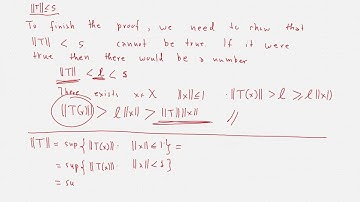 ||T|| ≤ s
To finish the proof, we need to show that
||T|| < s cannot be true. If it were
true then there would be a number
||T|| < l < s
There exists x∈X ||x||≤1 ||T(x)|| > l ≥ l||x||
||T(x)|| > l||x|| > ||T|| ||x|| //
||T|| = sup{||T(x)||: ||x||≤1} =
= sup{||T(x)||: ||x||<1}
= su